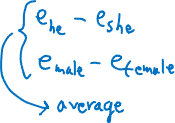 e_he - e_she
e_male - e_female
average